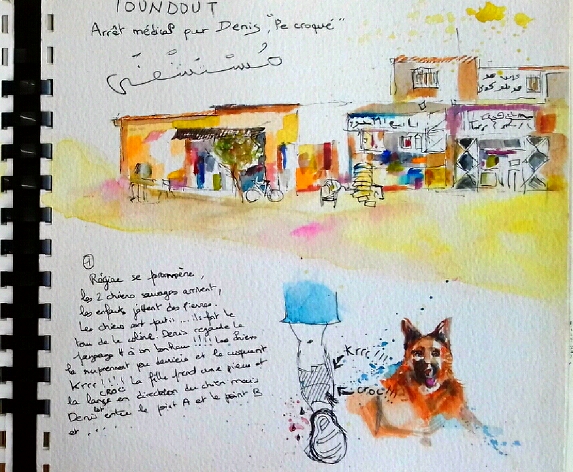 TOUNDOUT
Arrêt médical pour Denis, "le croqué"
مُسْتَشْفَى
①
Régine se promène,
les 2 chiens sauvages arrivent,
les enfants jettent des pierres.
Les chiens ont fui... Ils font le
tour de la colline. Denis regarde le
paysage à son bonheur !!!! Les chiens
le surprennent par derrière et le croquent
Krrr !!!! CROC La fille prend une pierre et
la lance en direction du chien mais
Denis est entre le point A et le point B
et .....
Krrr !!!
CROC !!